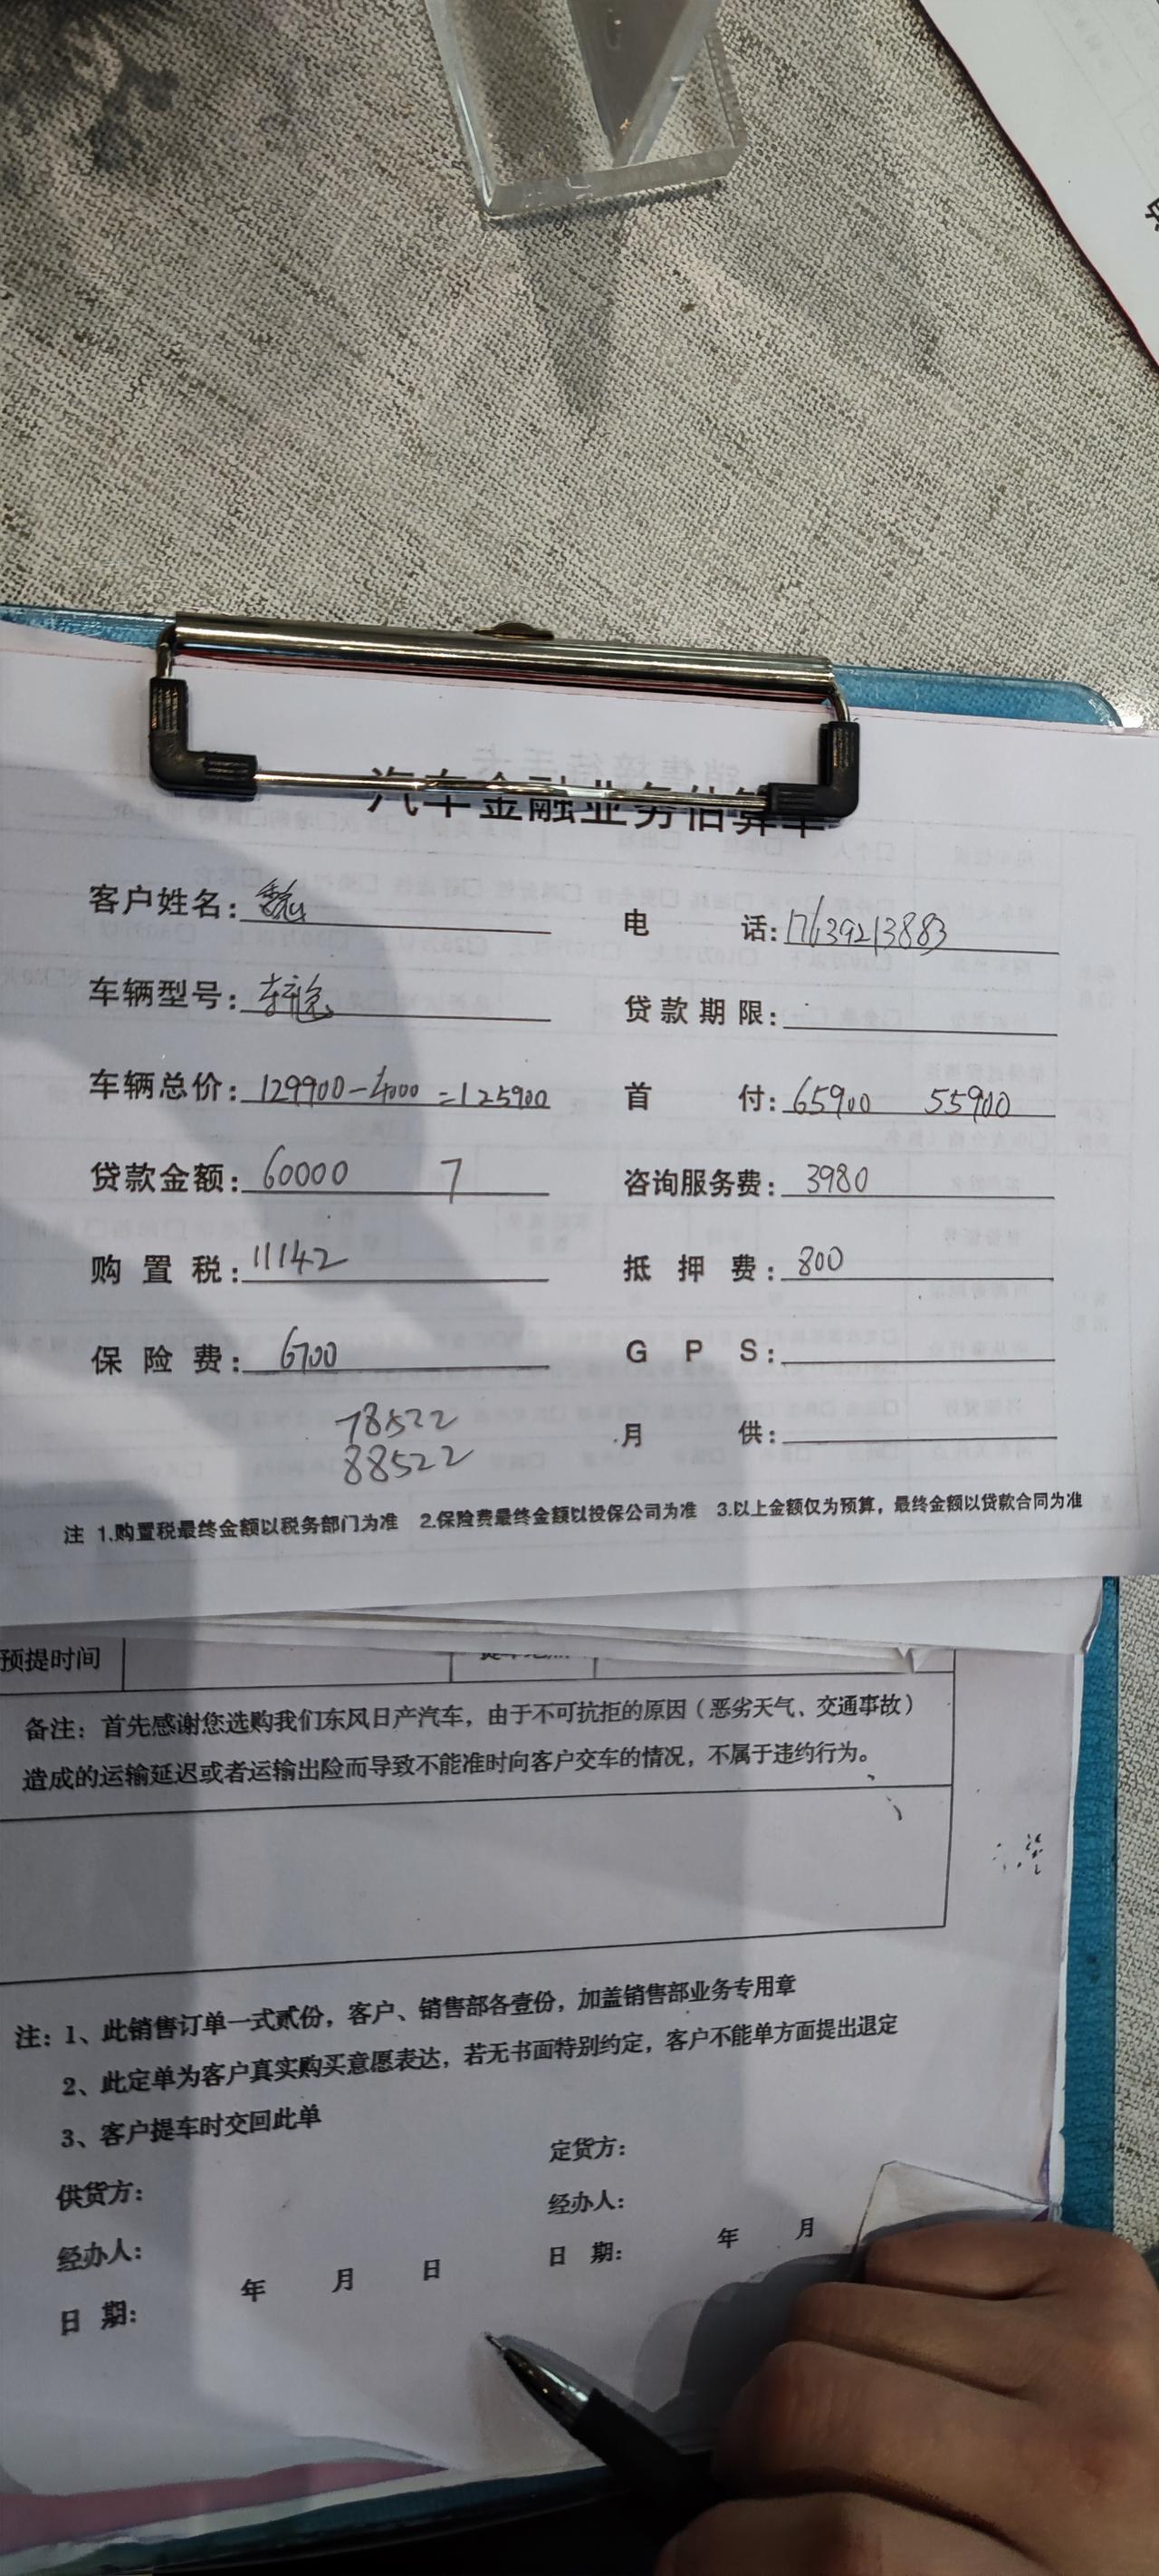 汽车金融业务估算单
客户姓名：魏 电 话：17639213883
车辆型号：轩逸 贷款期限：
车辆总价：129900-4000=125900 首 付：65900 55900
贷款金额：60000 7 咨询服务费：3980
购置税：11142 抵押费：800
保险费：6700 GPS：
78522
月 供：
88522
注 1.购置税最终金额以税务部门为准 2.保险费最终金额以投保公司为准 3.以上金额仅为预算，最终金额以贷款合同为准
预提时间
备注：首先感谢您选购我们东风日产汽车，由于不可抗拒的原因（恶劣天气、交通事故）
造成的运输延迟或者运输出险而导致不能准时向客户交车的情况，不属于违约行为。
注：1、此销售订单一式贰份，客户、销售部各壹份，加盖销售部业务专用章
2、此定单为客户真实购买意愿表达，若无书面特别约定，客户不能单方面提出退定
3、客户提车时交回此单
供货方： 定货方：
经办人： 经办人：
日 期： 年 月 日 日 期： 年 月